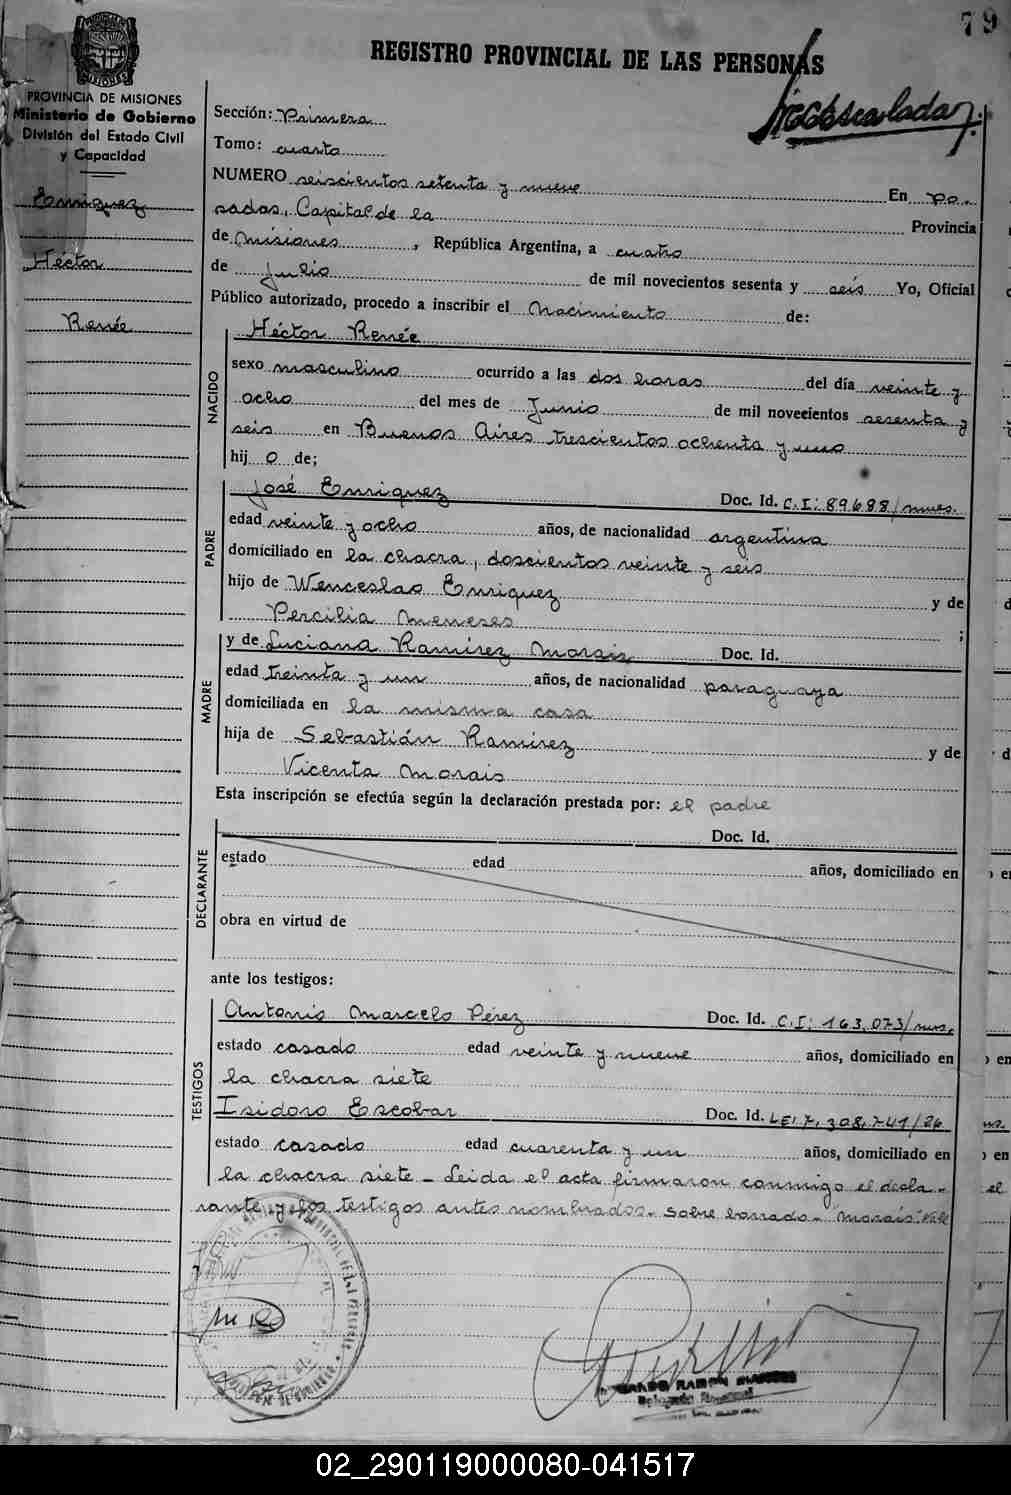 79
REGISTRO PROVINCIAL DE LAS PERSONAS
PROVINCIA DE MISIONES
Ministerio de Gobierno
División del Estado Civil
y Capacidad
Enriquez
Héctor
Renée
Sección: Primera
Tomo: cuarto
NUMERO seiscientos setenta y nueve En Po-
sadas, Capital de la Provincia
de Misiones, República Argentina, a cuatro
de Julio de mil novecientos sesenta y seis Yo, Oficial
Público autorizado, procedo a inscribir el Nacimiento de:
NACIDO
Héctor Renée
sexo masculino ocurrido a las dos horas del día veinte y
ocho del mes de Junio de mil novecientos sesenta y
seis en Buenos Aires trescientos ochenta y uno
hij o de;
PADRE
José Enriquez Doc. Id. C.I: 89688/mnes.
edad veinte y ocho años, de nacionalidad argentina
domiciliado en la chacra, doscientos veinte y seis
hijo de Wenceslao Enriquez y de
Percilia Meneses ;
MADRE
y de Luciana Ramirez Morais Doc. Id.
edad treinta y un años, de nacionalidad paraguaya
domiciliada en la misma casa
hija de Sebastián Ramirez y de
Vicenta Morais
Esta inscripción se efectúa según la declaración prestada por: el padre
DECLARANTE
Doc. Id.
estado edad años, domiciliado en
obra en virtud de
ante los testigos:
TESTIGOS
Antonio Marcelo Pérez Doc. Id. C.I: 163,073/mns.
estado casado edad veinte y nueve años, domiciliado en
la chacra siete
Isidoro Escobar Doc. Id. LE: 7,308,741/26
estado casado edad cuarenta y un años, domiciliado en
la chacra siete - Leida el acta firmaron conmigo el decla-
rante y los testigos antes nombrados. Sobre borrado - Morais: Vale
02_290119000080-041517